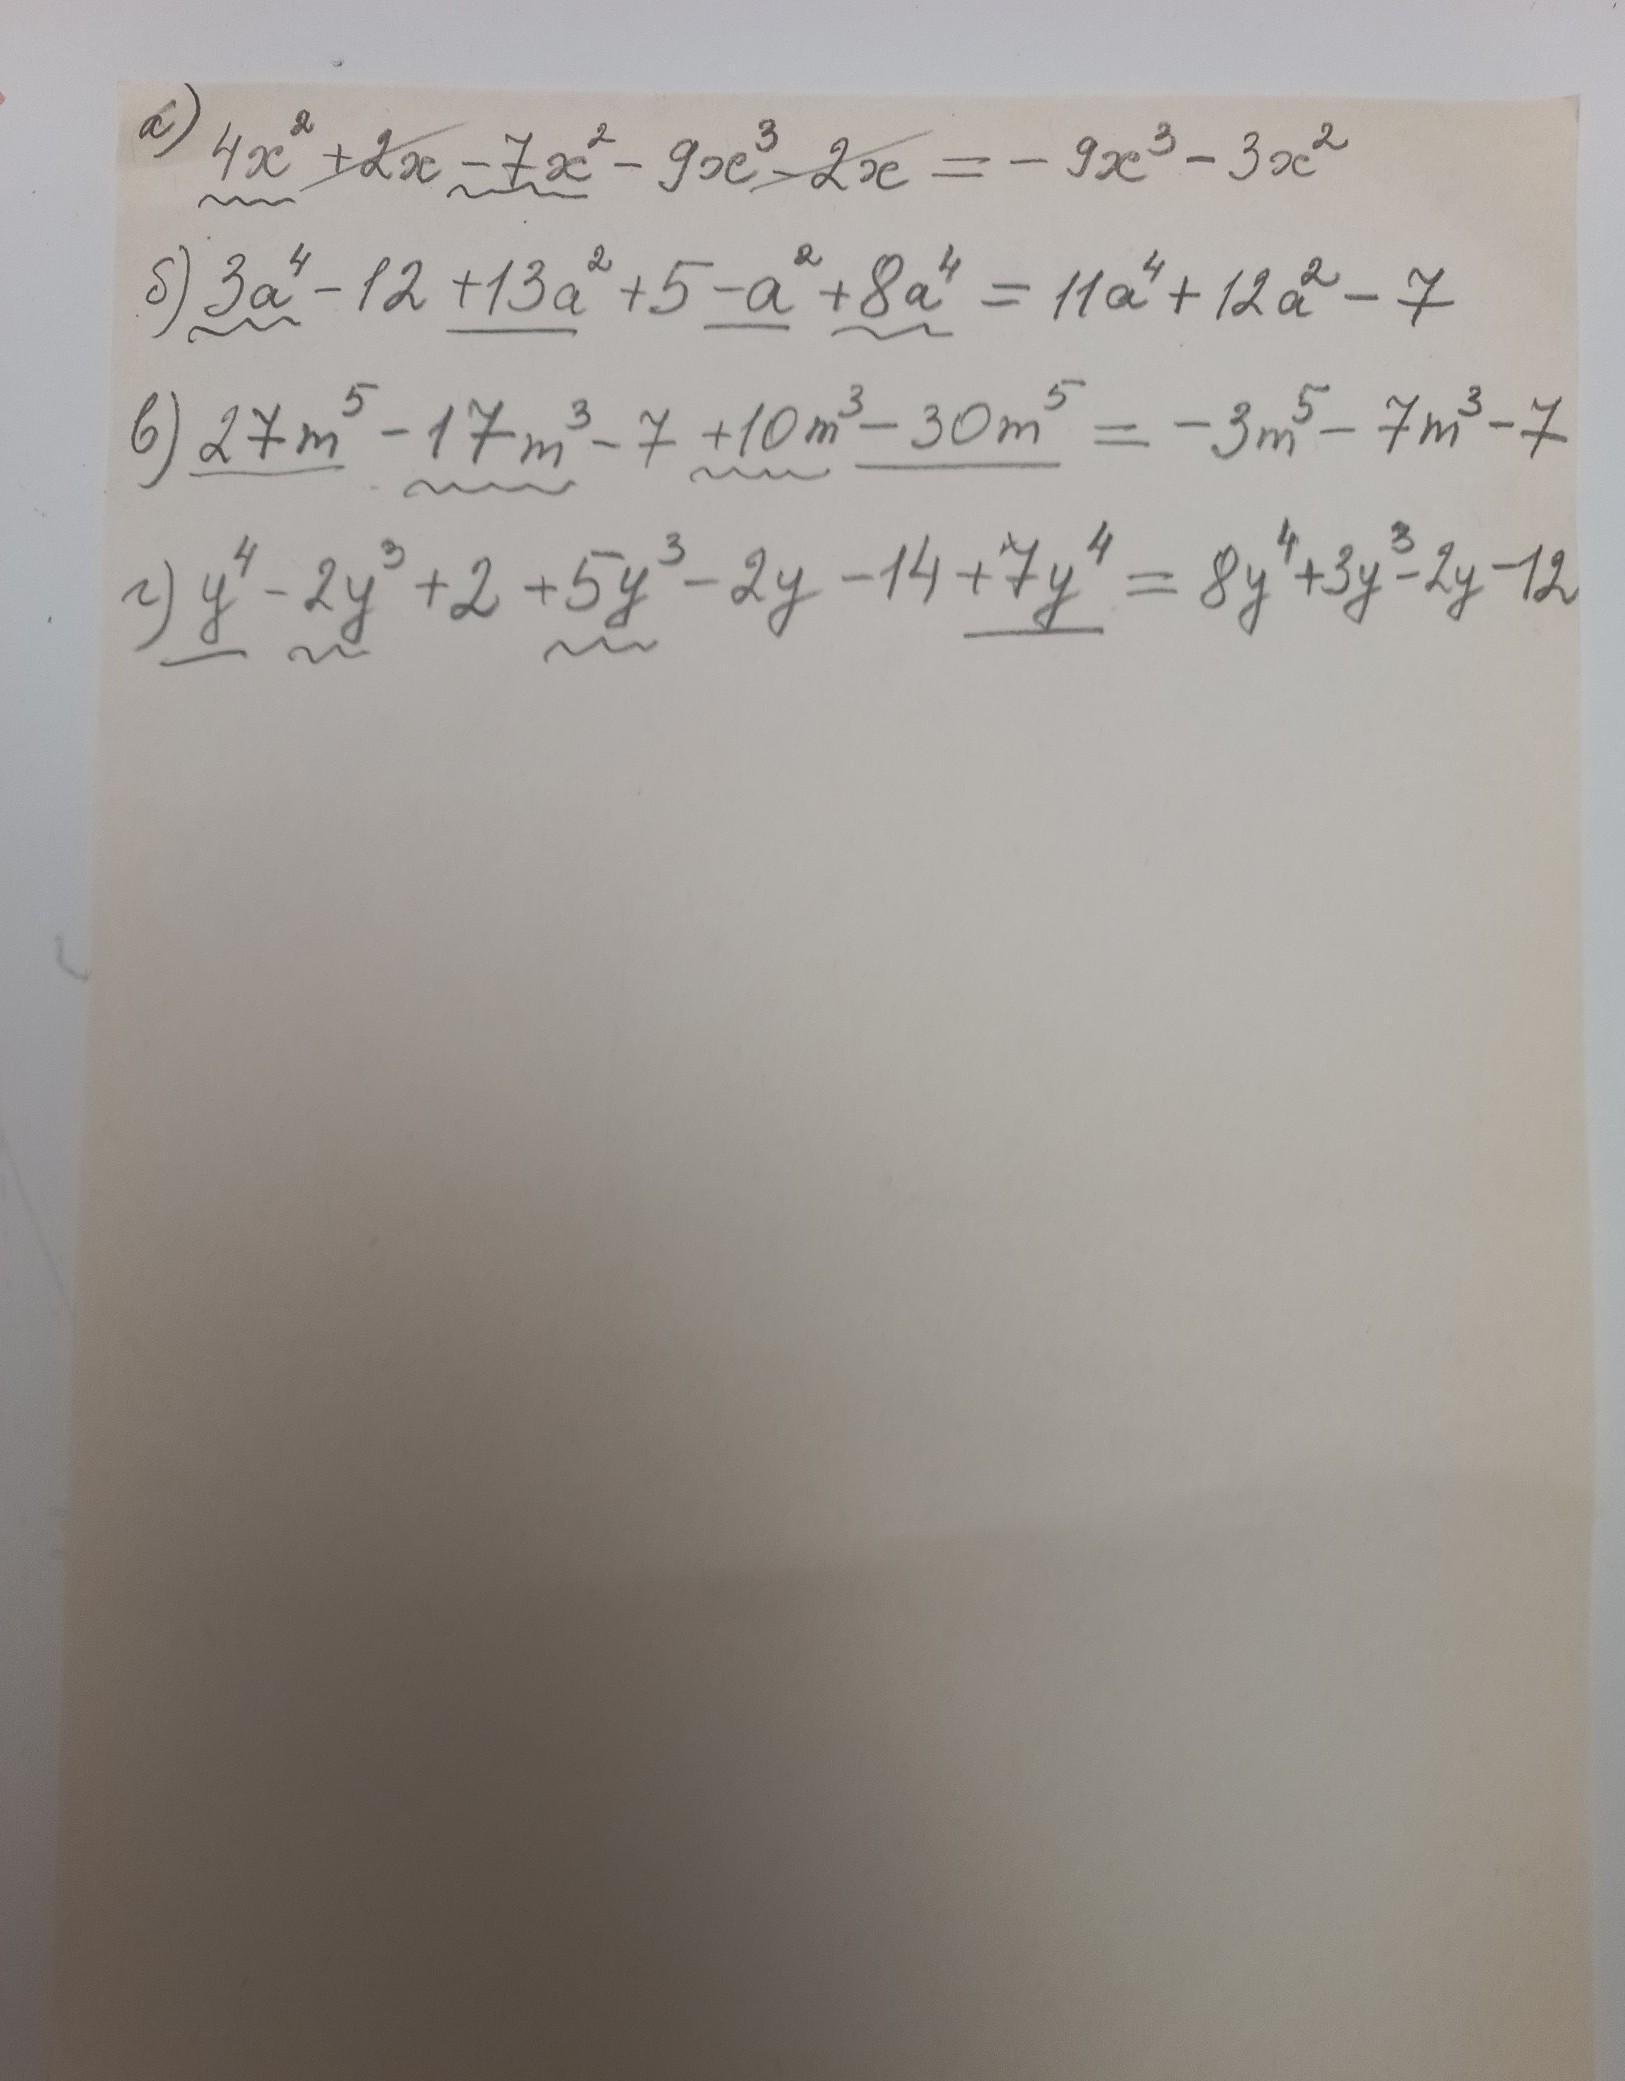 а) 4x² + 2x - 7x² - 9x³ - 2x = - 9x³ - 3x²
б) 3a⁴ - 12 + 13a² + 5 - a² + 8a⁴ = 11a⁴ + 12a² - 7
в) 27m⁵ - 17m³ - 7 + 10m³ - 30m⁵ = - 3m⁵ - 7m³ - 7
г) y⁴ - 2y³ + 2 + 5y³ - 2y - 14 + 7y⁴ = 8y⁴ + 3y³ - 2y - 12